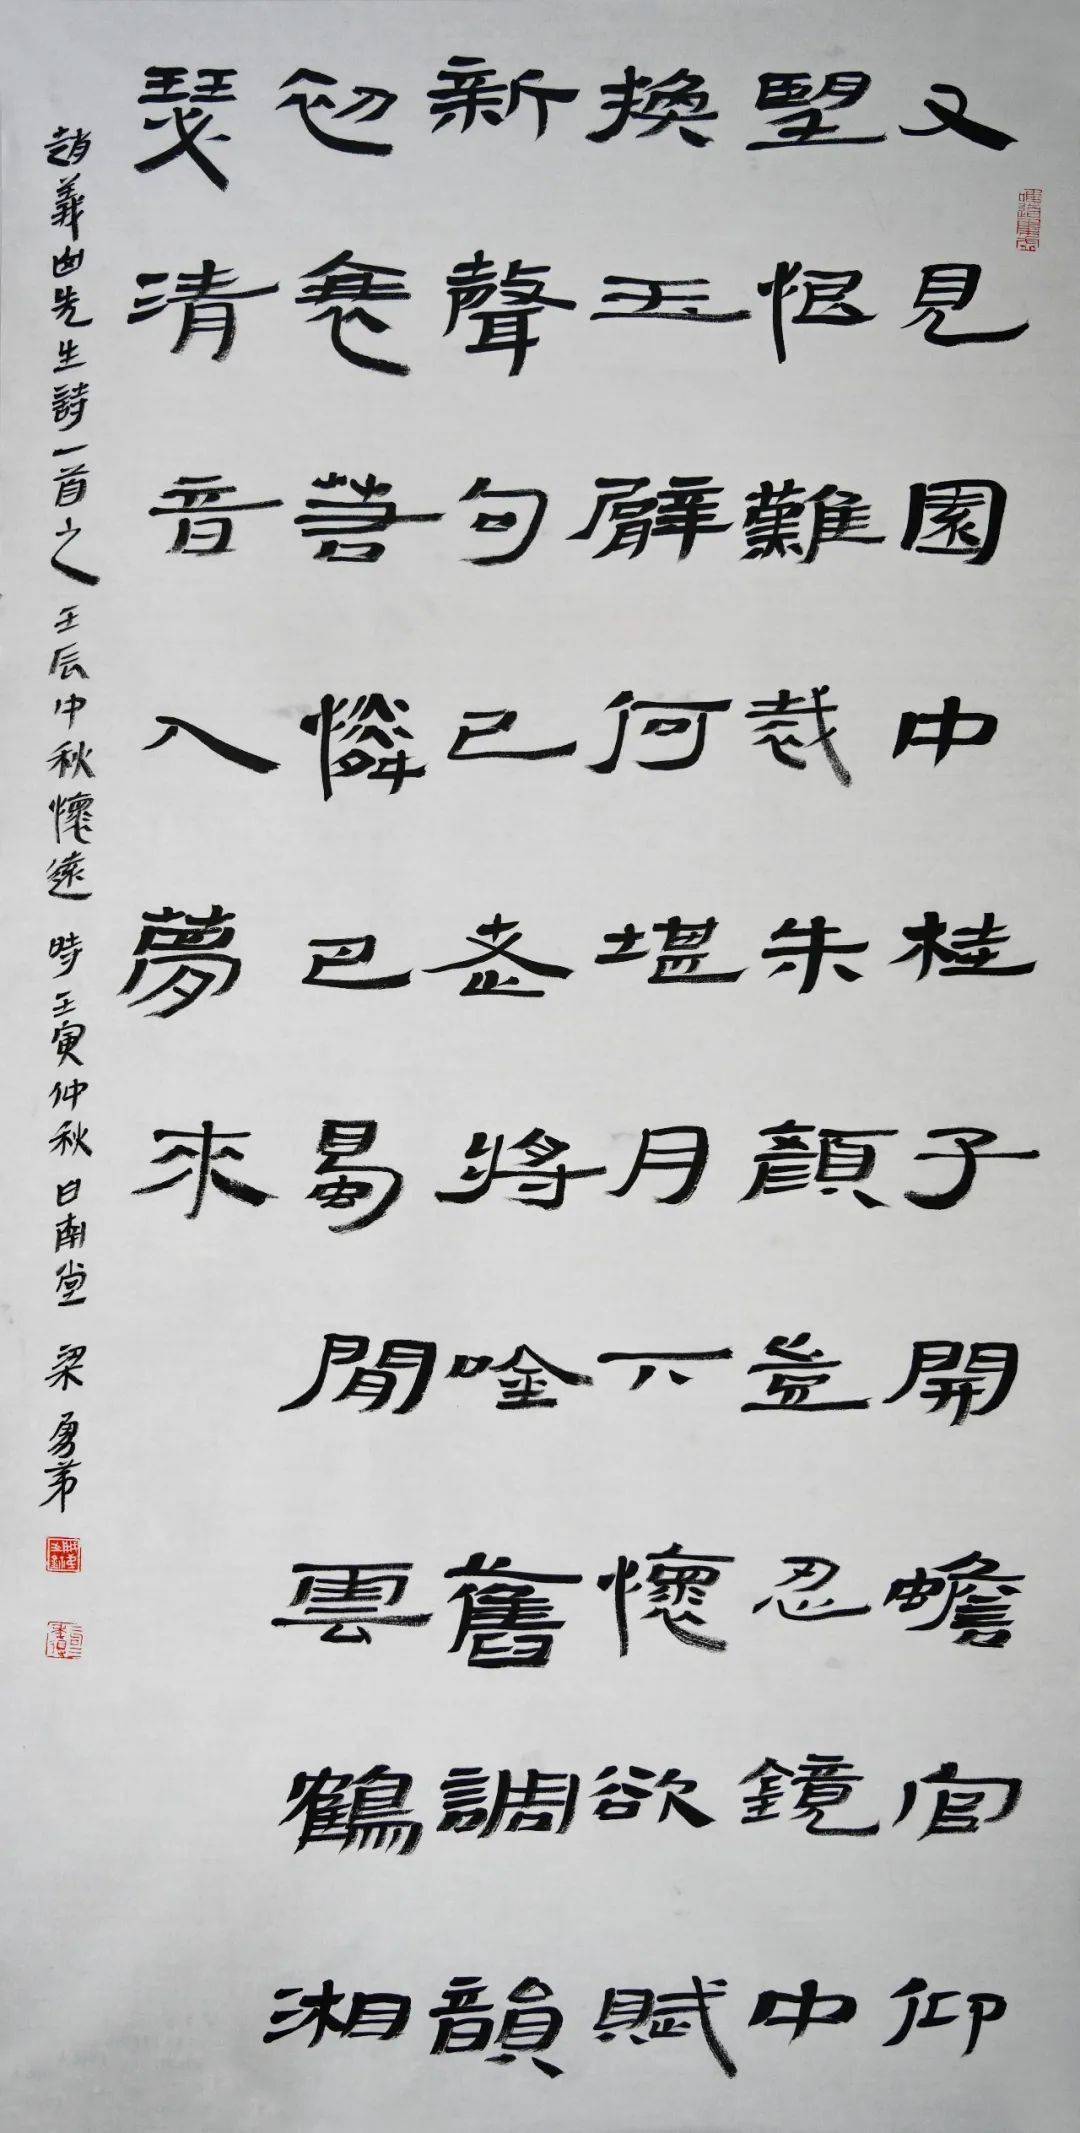 又見園中桂子開蟾宮仰
望恨難裁朱顏豈忍鏡中
換玉臂何堪月下懷欲賦
新聲句已老將唫舊調韻
初衰憐巴蜀閒雲鶴湘
瑟清音入夢來
趙義山先生詩一首之 壬辰中秋懷遠 時壬寅仲秋 日南堂 梁勇